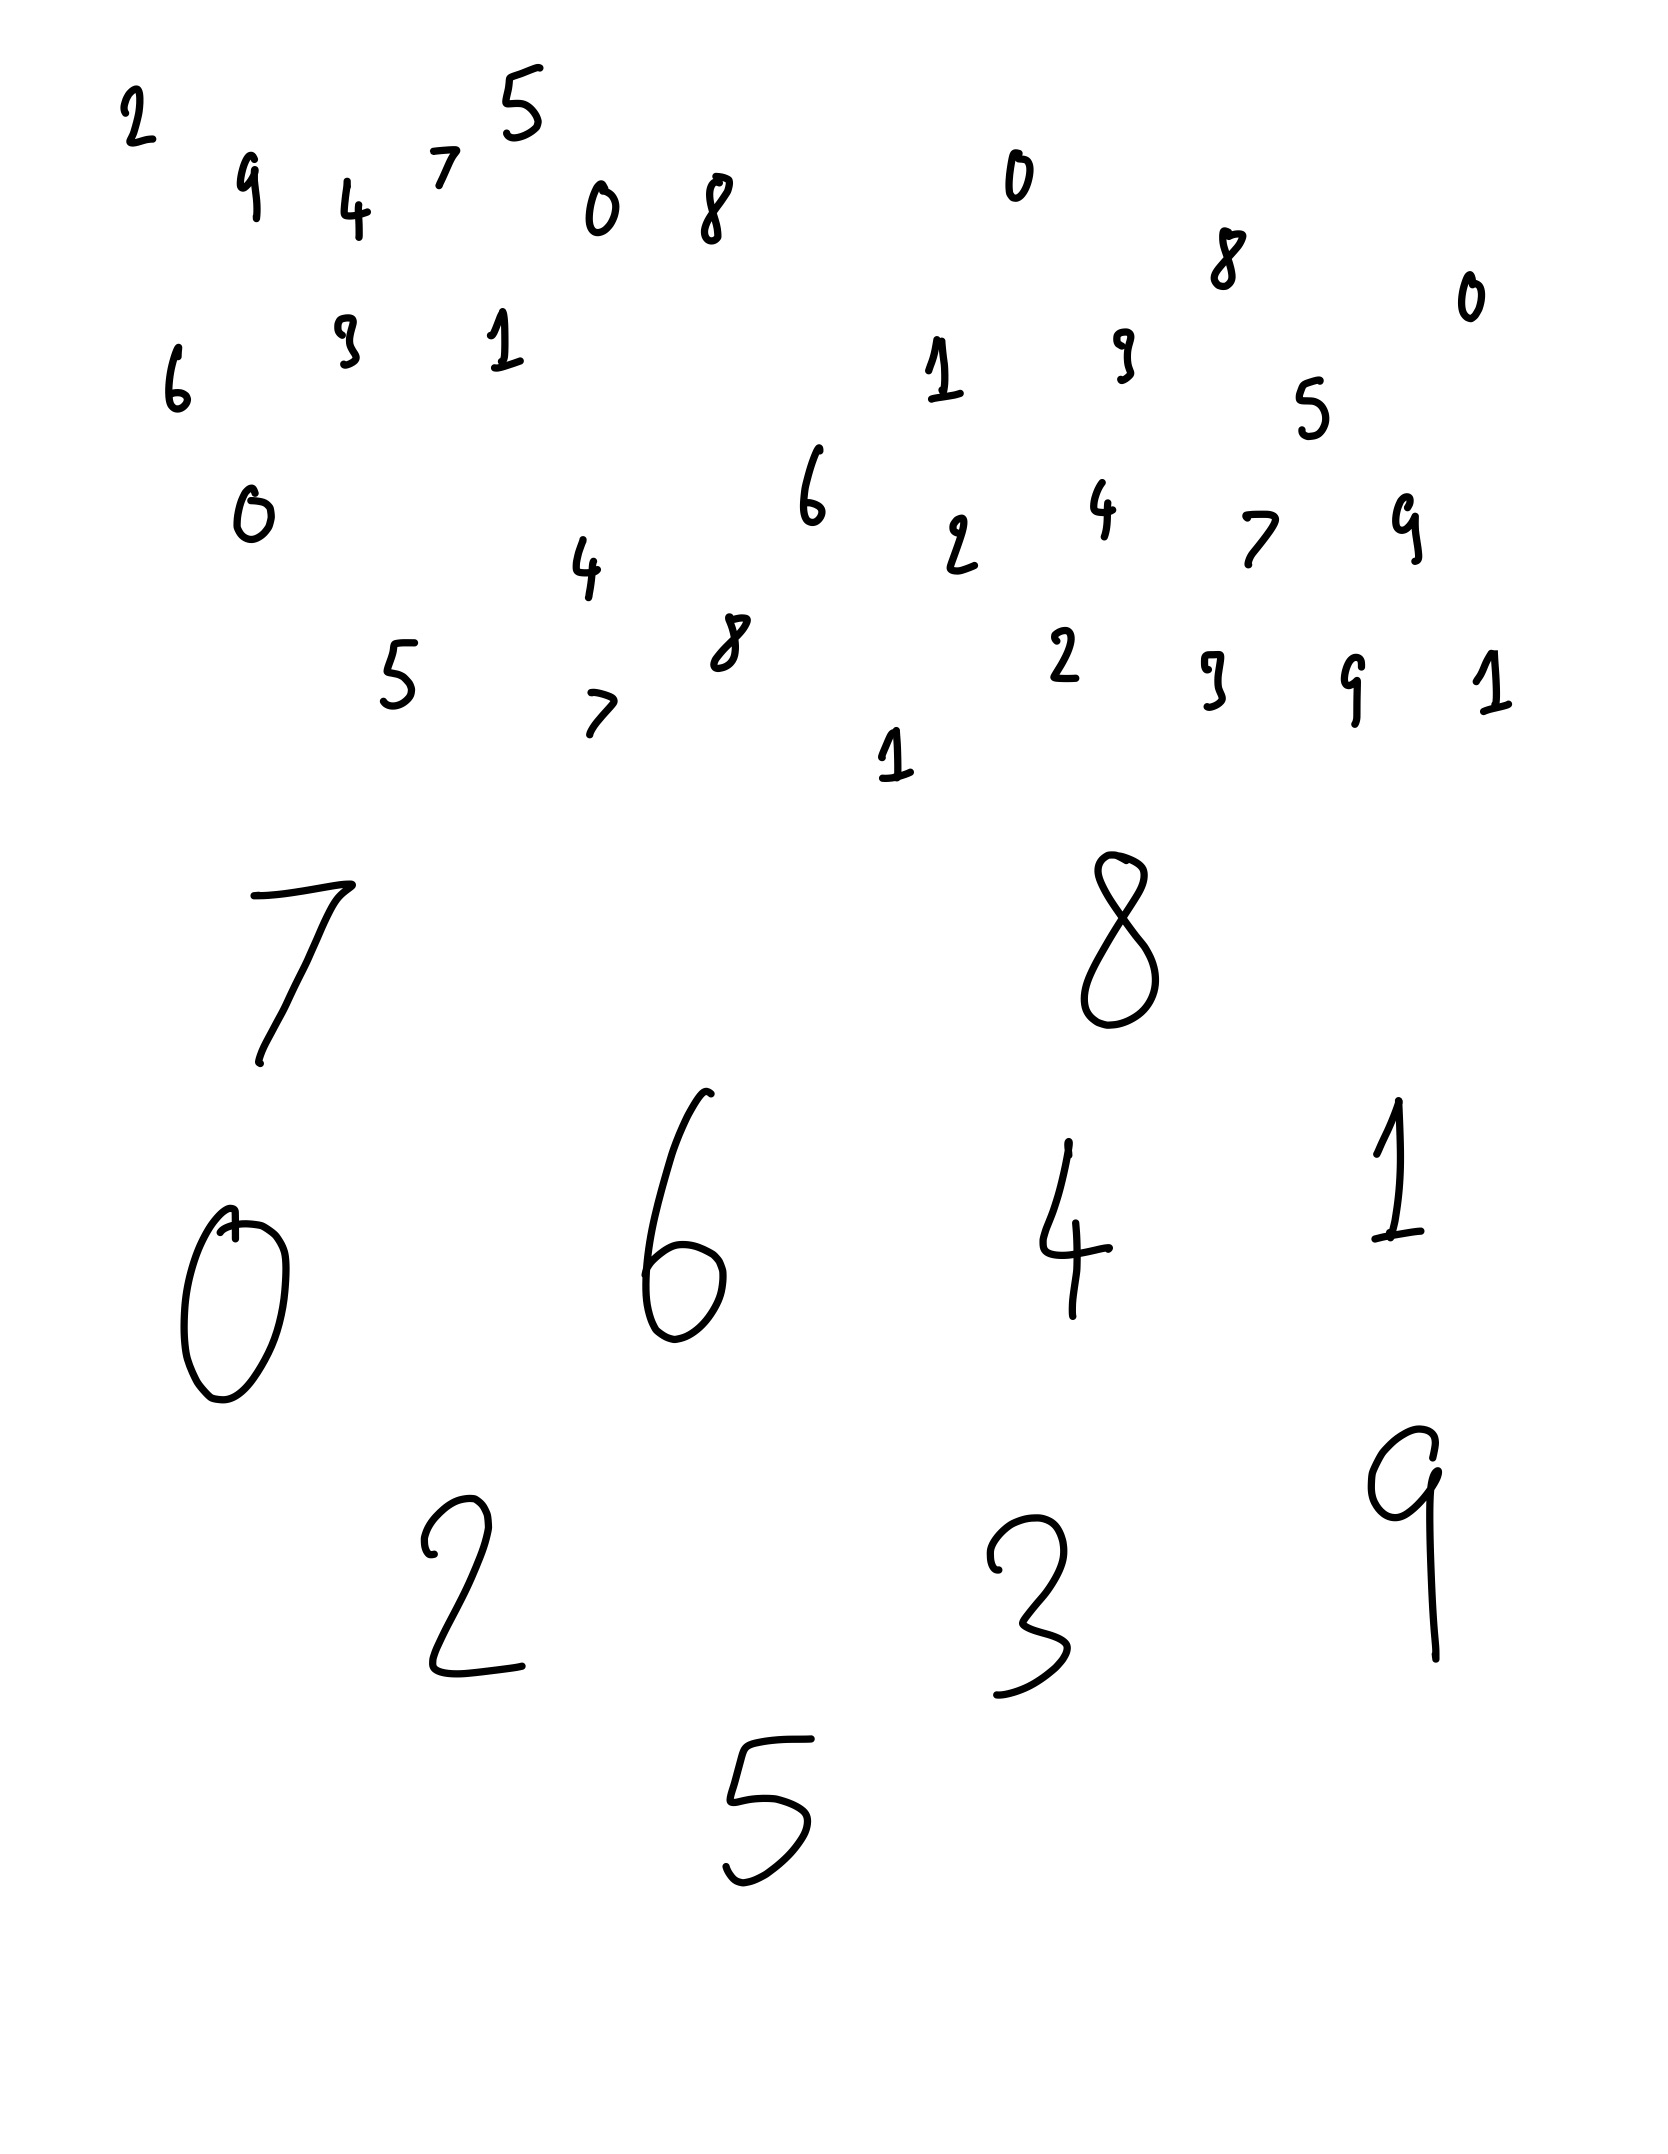 2 9 4 7 5 0 8 0 8 0
6 3 1 1 3 5
0 4 6 2 4 7 9
5 7 8 1 2 3 9 1
7 8
0 6 4 1
2 3 9
5